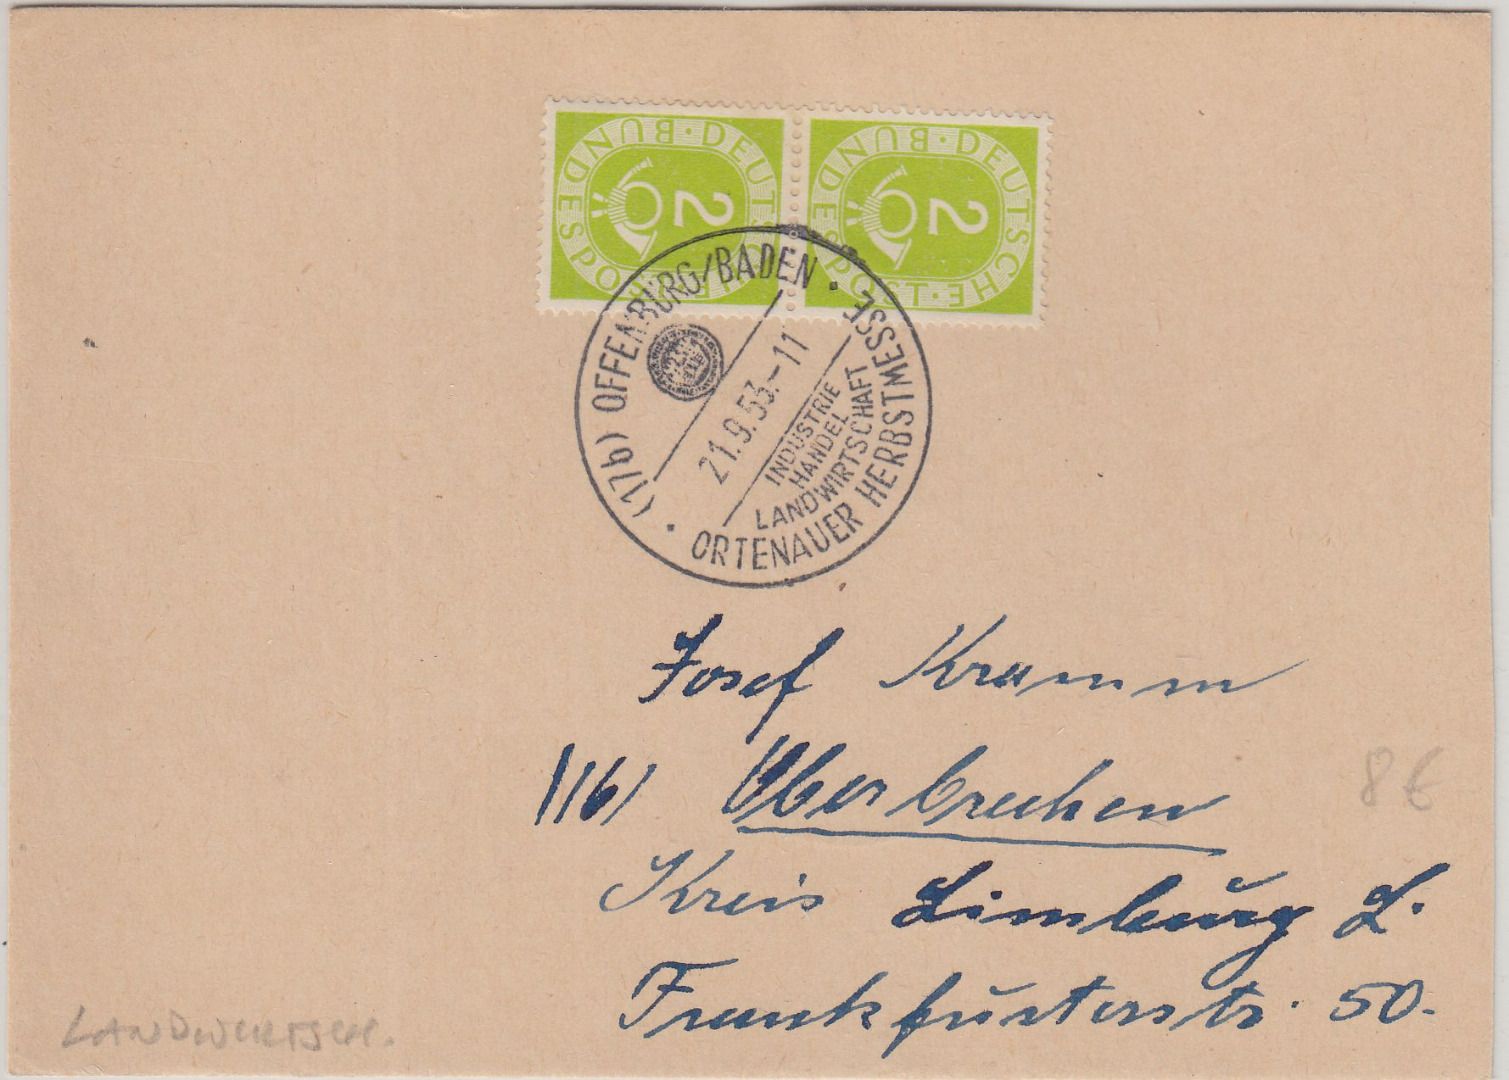 DEUTSCHE BUNDESPOST
2
DEUTSCHE BUNDESPOST
2
(17b) OFFENBURG/BADEN
21.9.53.-11
INDUSTRIE
HANDEL
LANDWIRTSCHAFT
ORTENAUER HERBSTMESSE
Josef Kramm
(16) Oberbrechen
Kreis Limburg L.
Frankfurterstr. 50.
8 €
LANDWIRTSCH.